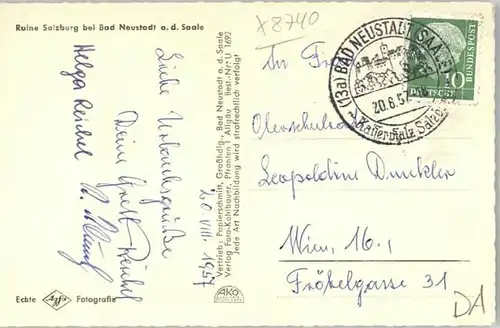 Ruine Salzburg bei Bad Neustadt a. d. Saale
X8740
Liebe Urlaubsgrüße
Deine Gretl Reichel
Helga Reichel
20. VIII. 1957
Vertrieb: Papierschmitt, Großhdlg., Bad Neustadt a. d. Saale
Verlag Foto-Kohlbauer, Pfronten/Allgäu Best.-Nr. U 1692
Jede Art Nachbildung wird strafrechtlich verfolgt
AKO
Echte Agfa Fotografie
(13a) BAD NEUSTADT (SAALE)
20.8.57
Kaiserpfalz Salzb
10
DEUTSCHE
BUNDESPOST
An Frau
Oberschulrat
Leopoldine Dunkler
Wien, 16.,
Fröbelgasse 31
DA